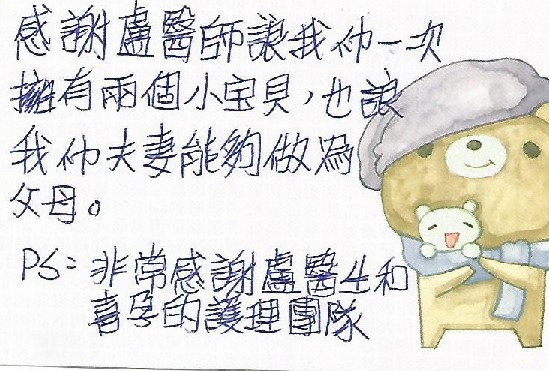 感謝盧醫師讓我们一次
擁有兩個小宝貝，也讓
我们夫妻能夠做為
父母。
PS：非常感謝盧醫生和
喜孕的護理團隊